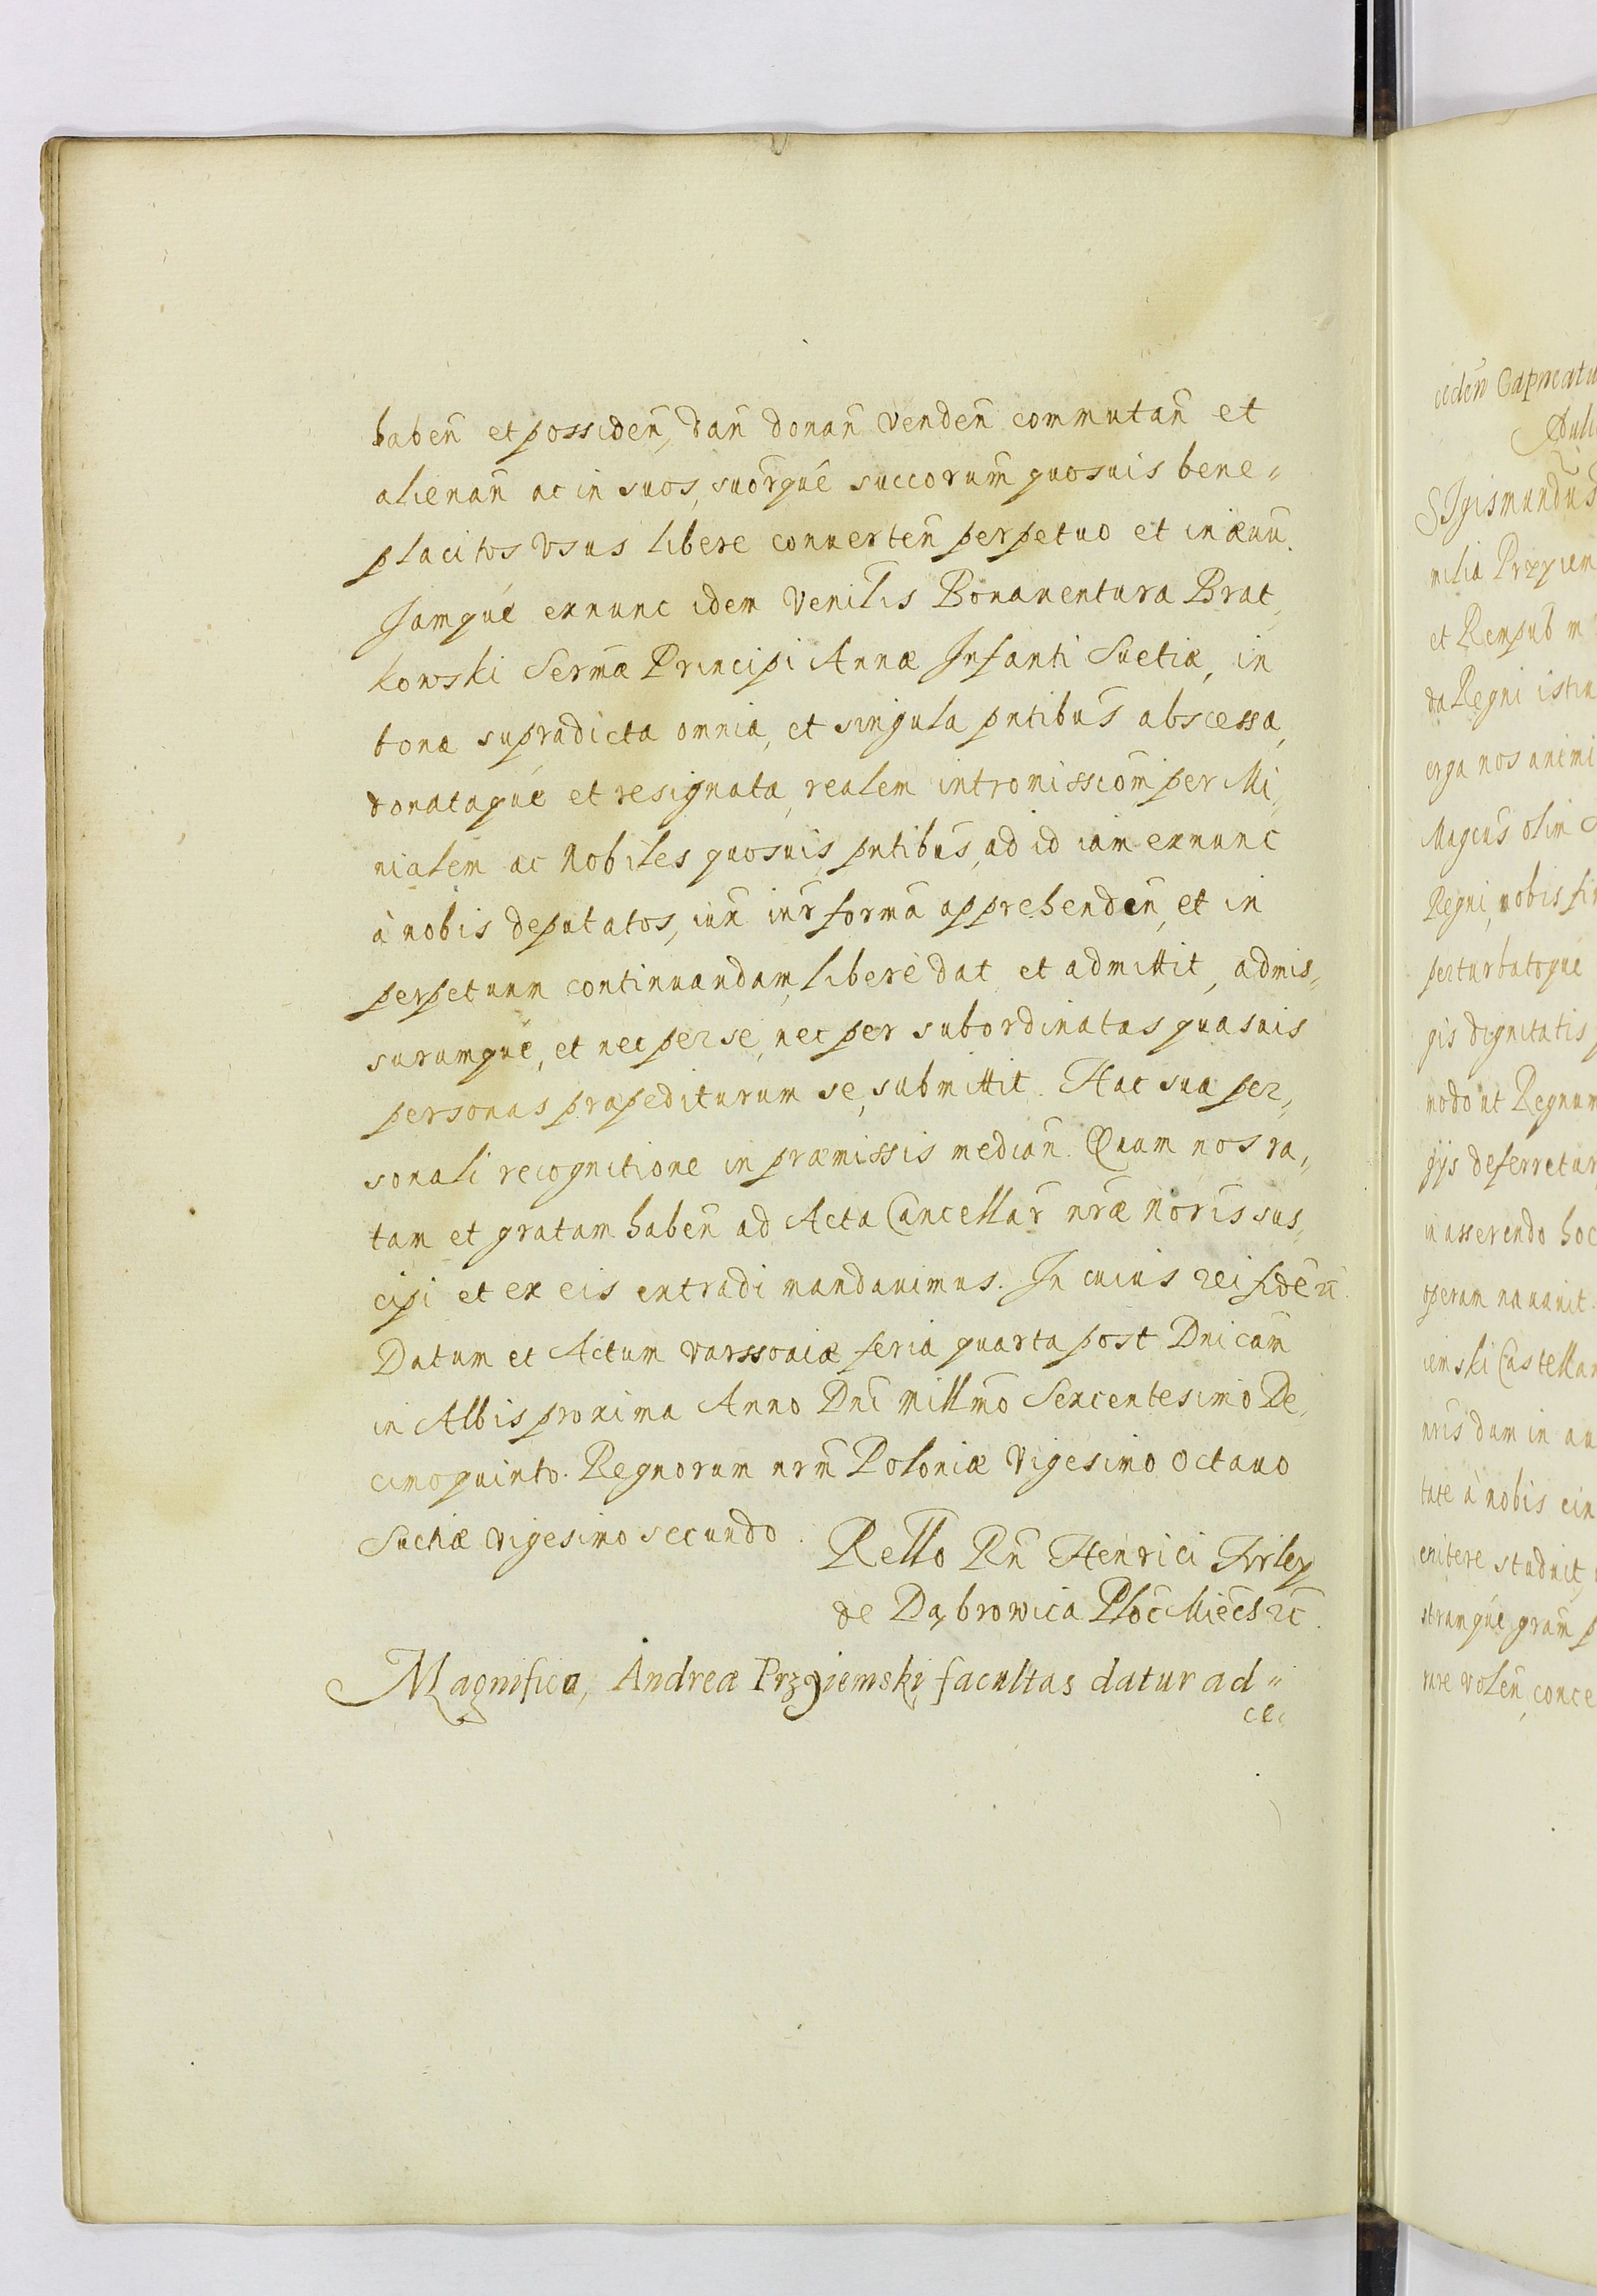 haben̄ et possiden̄, dan̄ donan̄ venden̄ commutan̄ et
alienan̄ ac in suos, suōrque succorum̄ quosuis bene„
placitos vsus libere conuerten̄ perpetuo et in æuū.
Jamque exnunc idem Venīlis Bonauentura Brat„
kowski Serm̄æ Principi Annæ Infanti Suetiæ, in
bona supradicta omnia, et singula pn̄tibus abscessa,
donataque et resignata, realem intromissiōm per Mi„
nialem ac Nobiles quosuis pn̄tibus, ad id iam exnunc
à nobis deputatos, iun̄ iur̄ formā apprehenden̄, et in
perpetuum continuandam, liberè dat et admittit, admis„
surumque, et nec per se, nec per subordinatas quasuis
personas præpediturum se, submittit. Hac sua per„
sonali recognitione in præmissis median̄. Quam nos ra„
tam et gratam haben̄ ad Acta Cancellar̄ nr̄æ Noris̄ sus„
cipi et ex eis extradi mandauimus. In cuius rei fidēn̄.
Datum et Actum varssouiæ feria quarta post Dn̄icam̄
in Albis proxima Anno Dn̄i Millm̄o Sexcentesimo De„
cimoquinto. Regnorum nrm̄ Poloniæ Vigesimo octauo
Sueciæ vigesimo secundo.
Rell̄o Rn̄ Henrici Firley
de Dąbrowica Ploc̄ Miēcs̄ rc̄.
Magnifico, Andreæ Przyiemski facultas datur ad„
ce„
ceden̄
SIgismundus
et Rempub m
da Regni istiu
erga nos animi
Magcus̄ olim
Regni, nobis
perturbatoque
gis dignitatis
modo ut Regnum
gijs deferretur
in asserendo hoc
operam nauauit.
iemski Castellan
nris̄ dum in au
tate à nobis
enitere studuit
stramque gram̄
rare volen̄, conce